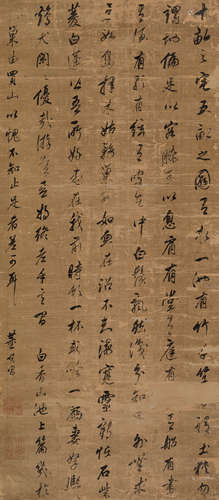 十畝之宅五畝之園有水一池有竹千竿勿謂土狹勿
謂地偏足以容膝足以息肩有堂有庭有橋有船有書
有酒有歌有絃有叟在中白鬚飄然識分知足外無求
焉如鳥擇木姑務巢安如龜在坎不知海寬靈鶴怪石紫
菱白蓮皆吾所好盡在我前時飲一杯或吟一篇妻孥熙
雞犬閒閒優哉游哉吾將終老乎其間 白香山池上篇幾於
巢由買山以愧不知止足者是可耳 董其昌